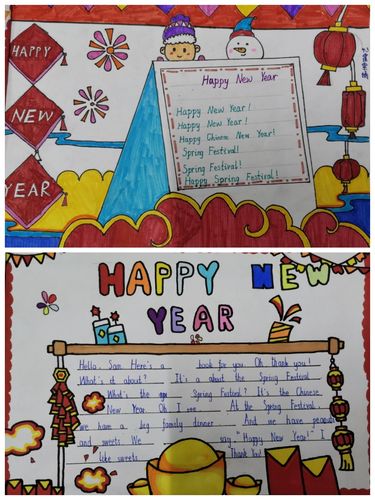 HAPPY
NEW
YEAR
Happy New Year
Happy New Year!
Happy New Year!
Happy Chinese New Year!
Spring Festival!
Spring Festival!
Happy Spring Festival!
HAPPY NEW
YEAR
Hello, Sam. Here's a book for you. Oh thank you!
What's it about? It's a about the Spring Festival.
What's the Spring Festival? It's the Chinese
New Year. Oh I see. At the Spring Festival
we ham a big family dinner. And we have peanuts
and sweets We say "Happy New Year!" I
like sweets. Thank You!